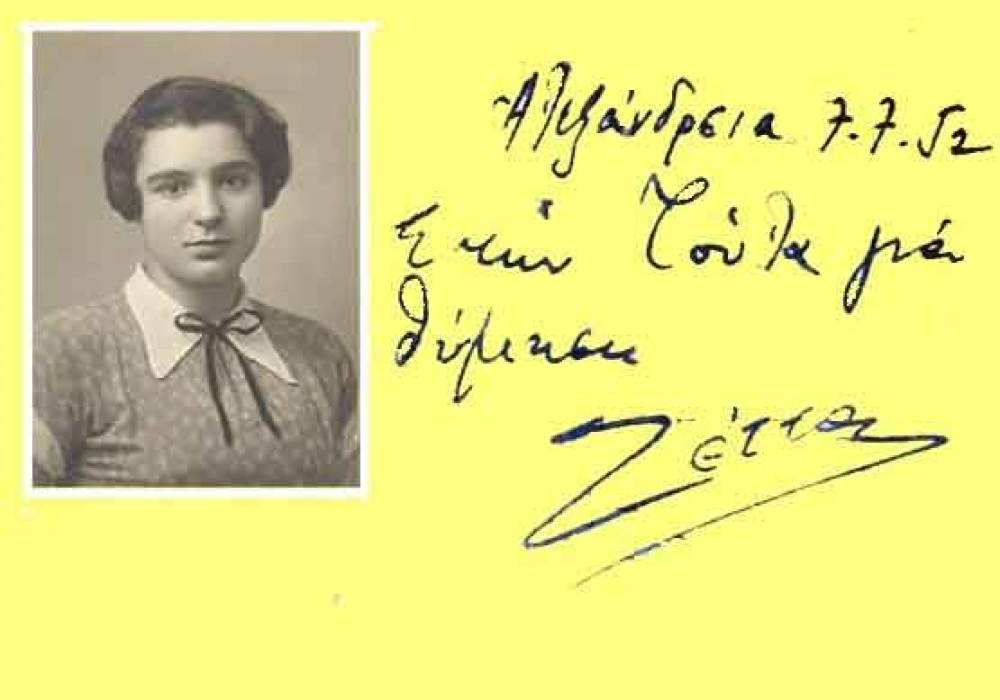 Ἀλεξάνδρεια 7.7.52
Στὴν Τούλα γιὰ
θύμηση
Ζέττα